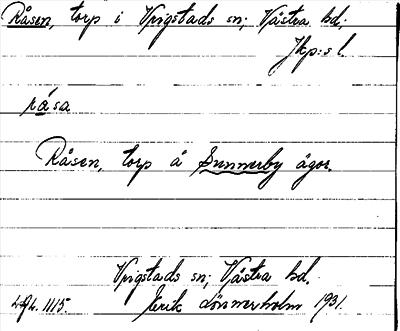 Råsen, torp i Vrigstads sn; Västra hd;
Jkp:s l.
råsa
Råsen, torp å Sunnerby ägor.
Vrigstads sn; Västra hd.
Erik Lönnerholm 1931.